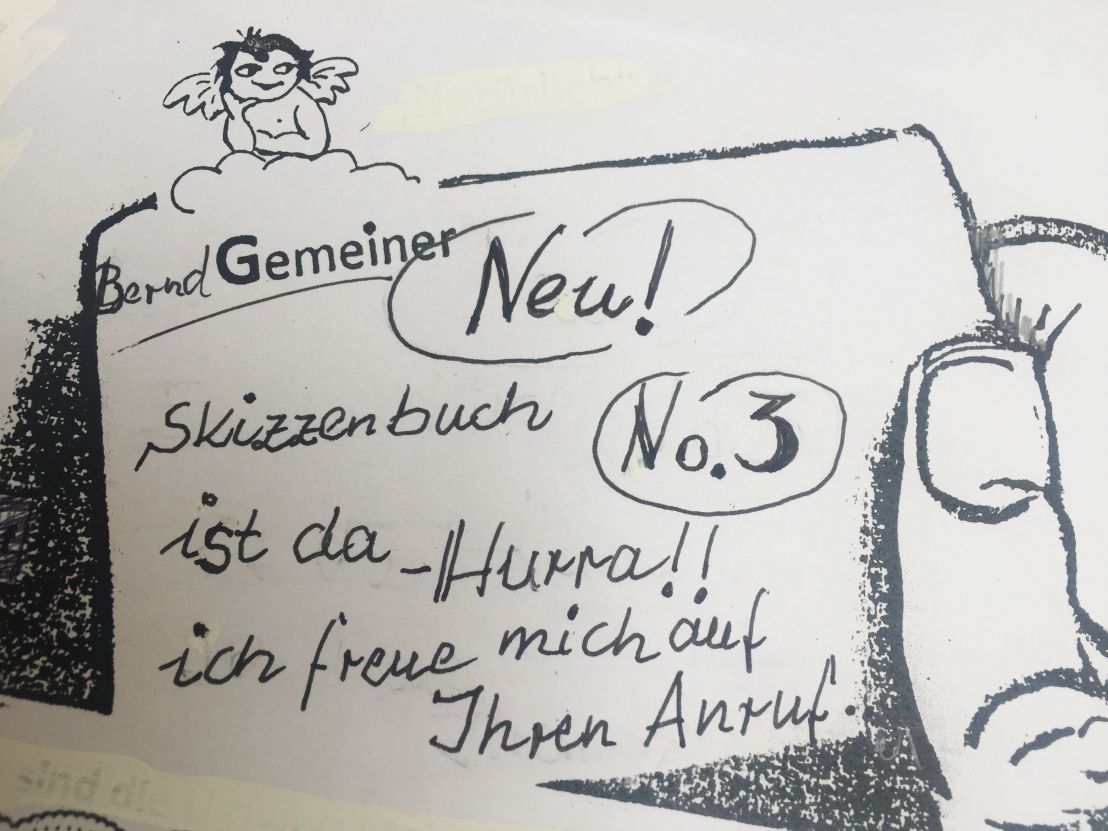 Bernd Gemeiner
Neu!
Skizzenbuch No. 3
ist da - Hurra!!
ich freue mich auf
Ihren Anruf.